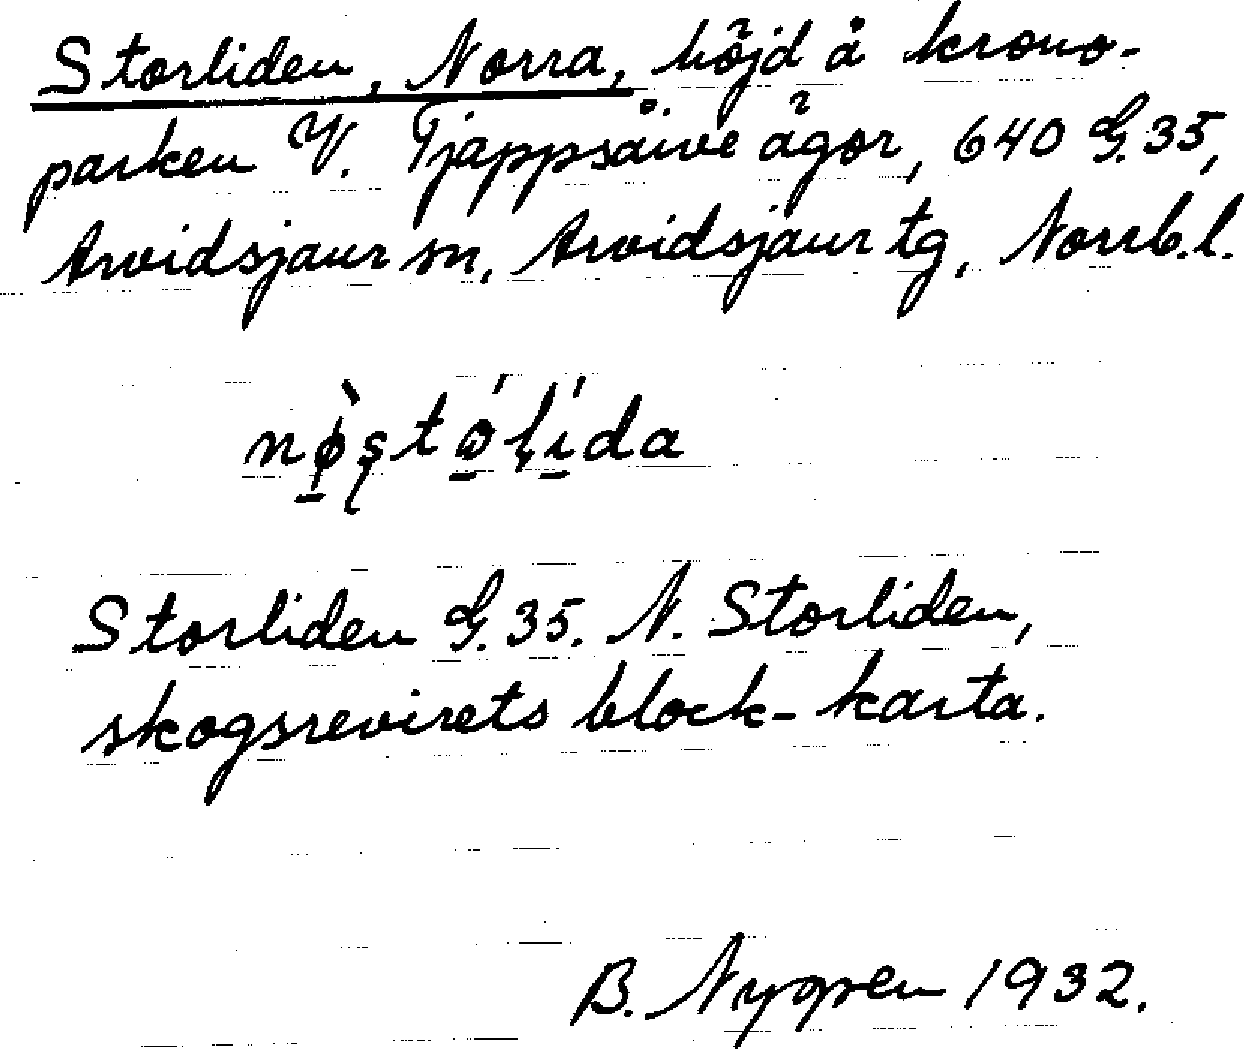 Storliden, Norra, höjd å krono-
parken V. Tjappsåive ägor, 640 G. 35,
Arvidsjaur sn, Arvidsjaur tg, Norrb.l.
Storliden G. 35. N. Storliden,
skogsrevirets block-karta.
B. Nygren 1932.